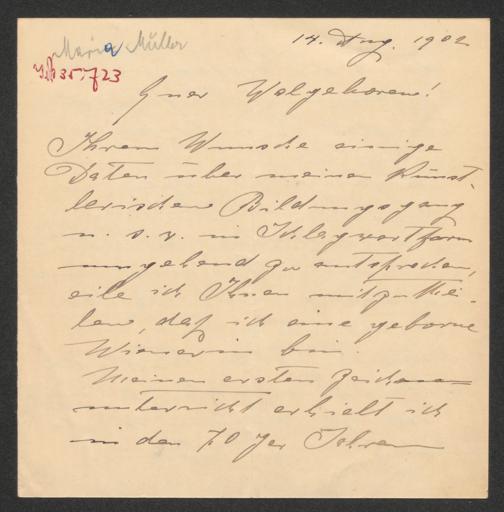 14. Aug. 1902
Maria Müller
35723
Euer Wolgeboren!
Ihrem Wunsche einige
Daten über meinen künst-
lerischen Bildungsgang
u. s. w. in Schlagwortform
umgehend zu entsprechen,
eile ich Ihnen mitzuthei-
len, daß ich eine geborne
Wienerin bin.
Meinen ersten Zeichen=
unterricht erhielt ich
in den 70ger Jahren